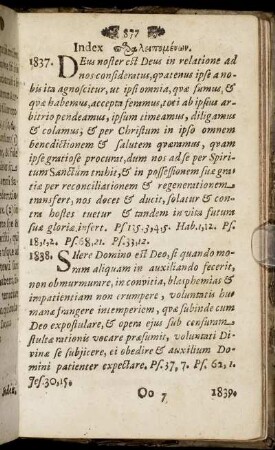 877
Index παραλειπομένων.
1837. DEus noster est Deus in relatione ad
nos consideratus, quatenus ipse a no-
bis ita agnoscitur, ut ipsi omnia, quæ sumus, &
quæ habemus, accepta feramus, tori ab ipsius ar-
bitrio pendeamus, ipsum timeamus, diligamus
& colamus; & per Christum in ipso omnem
benedictionem & salutem quæramus, quam
ipse gratiose procurat, dum nos ad se per Spiri-
tum Sanctum trahit, & in possessionem suæ gra-
tiæ per reconciliationem & regenerationem
transfert, nos doces & ducit, solatur & con-
tra hostes tuetur & tandem in vita futura
suæ gloriæ infert. Ps 135.3,4,5. Hab.1,12. Ps.
18,1,2. Ps.68,21. Ps.33,12.
1838. SIlere Domino est Deo, si quando mo-
ram aliquam in auxiliando fecerit,
non obmurmurare, in convitia, blasphemias &
impatientiam non erumpere, voluntatis hu-
manæ frangere intemperiem, quæ subinde cum
Deo expostulare, & opera ejus sub censuram
stultæ rationis vocare præsumit, voluntati Di-
vinæ se subjicere, ei obedire & auxilium Do-
mini patienter expectare. Ps. 37, 7. Ps. 62, 1.
Jes. 30,15.
Oo 7 1839.